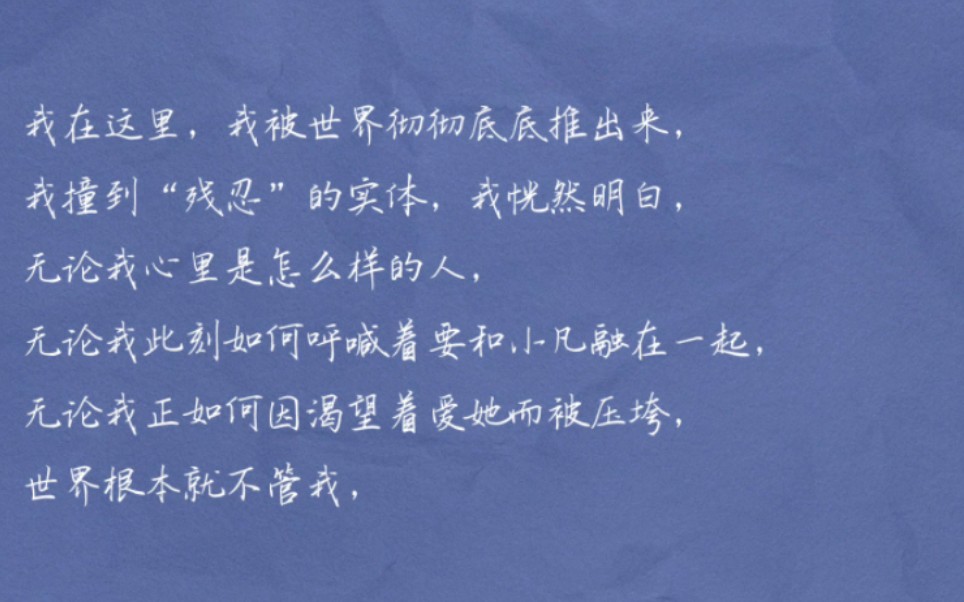 我在这里，我被世界彻彻底底推出来，
我撞到“残忍”的实体，我恍然明白，
无论我心里是怎么样的人，
无论我此刻如何呼喊着要和小凡融在一起，
无论我正如何因渴望着爱她而被压垮，
世界根本就不管我，